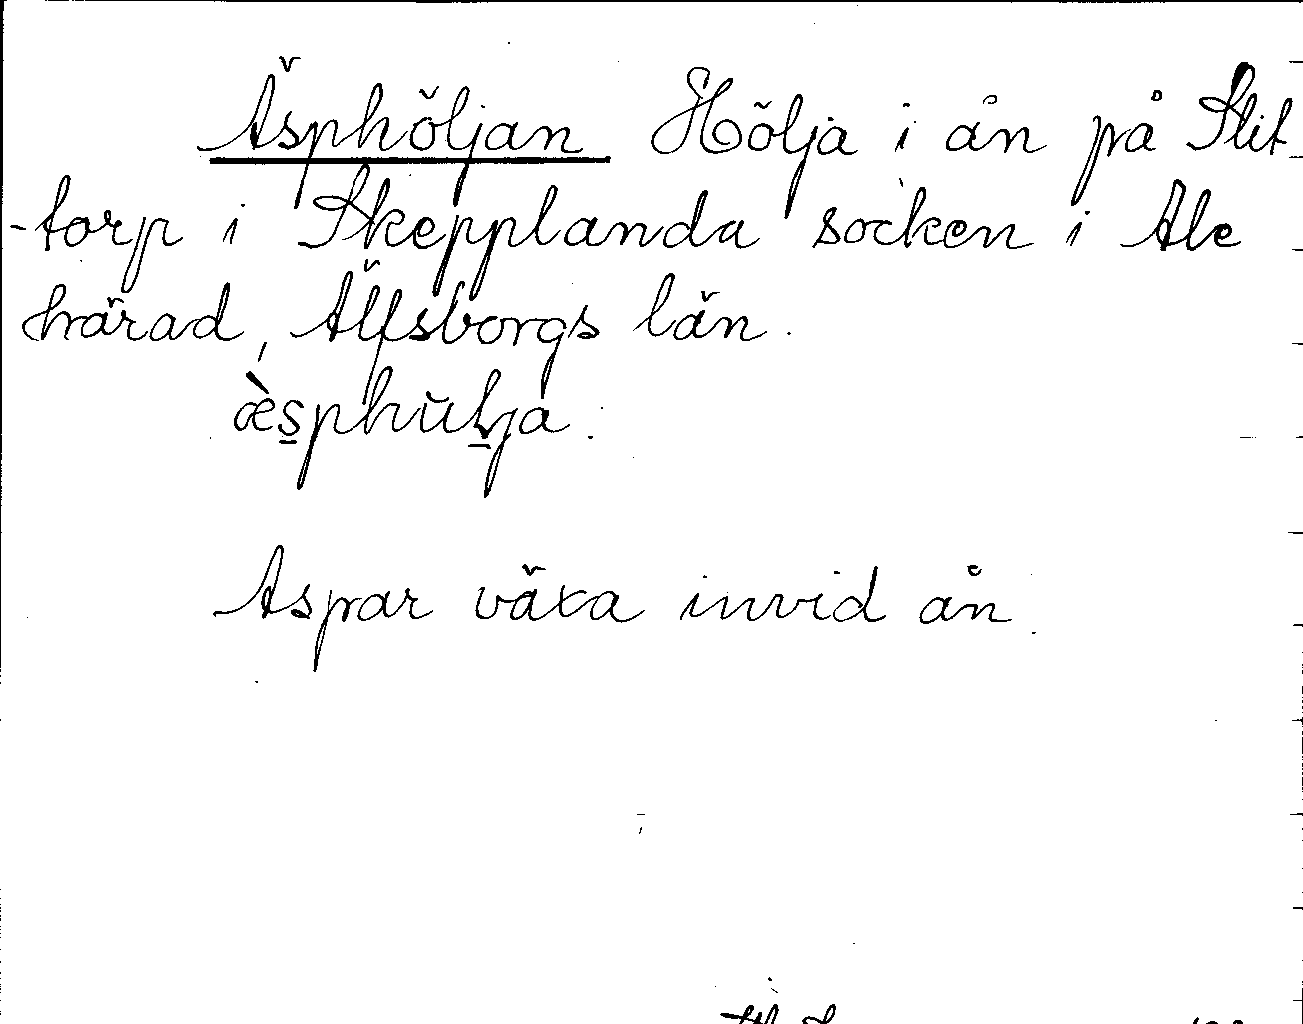 Äsphöljan Hölja i ån på Slit
-torp i Skepplanda socken i Ale
härad, Älfsborgs län.
æ̀s̱phŭḻja.
Aspar växa invid ån.